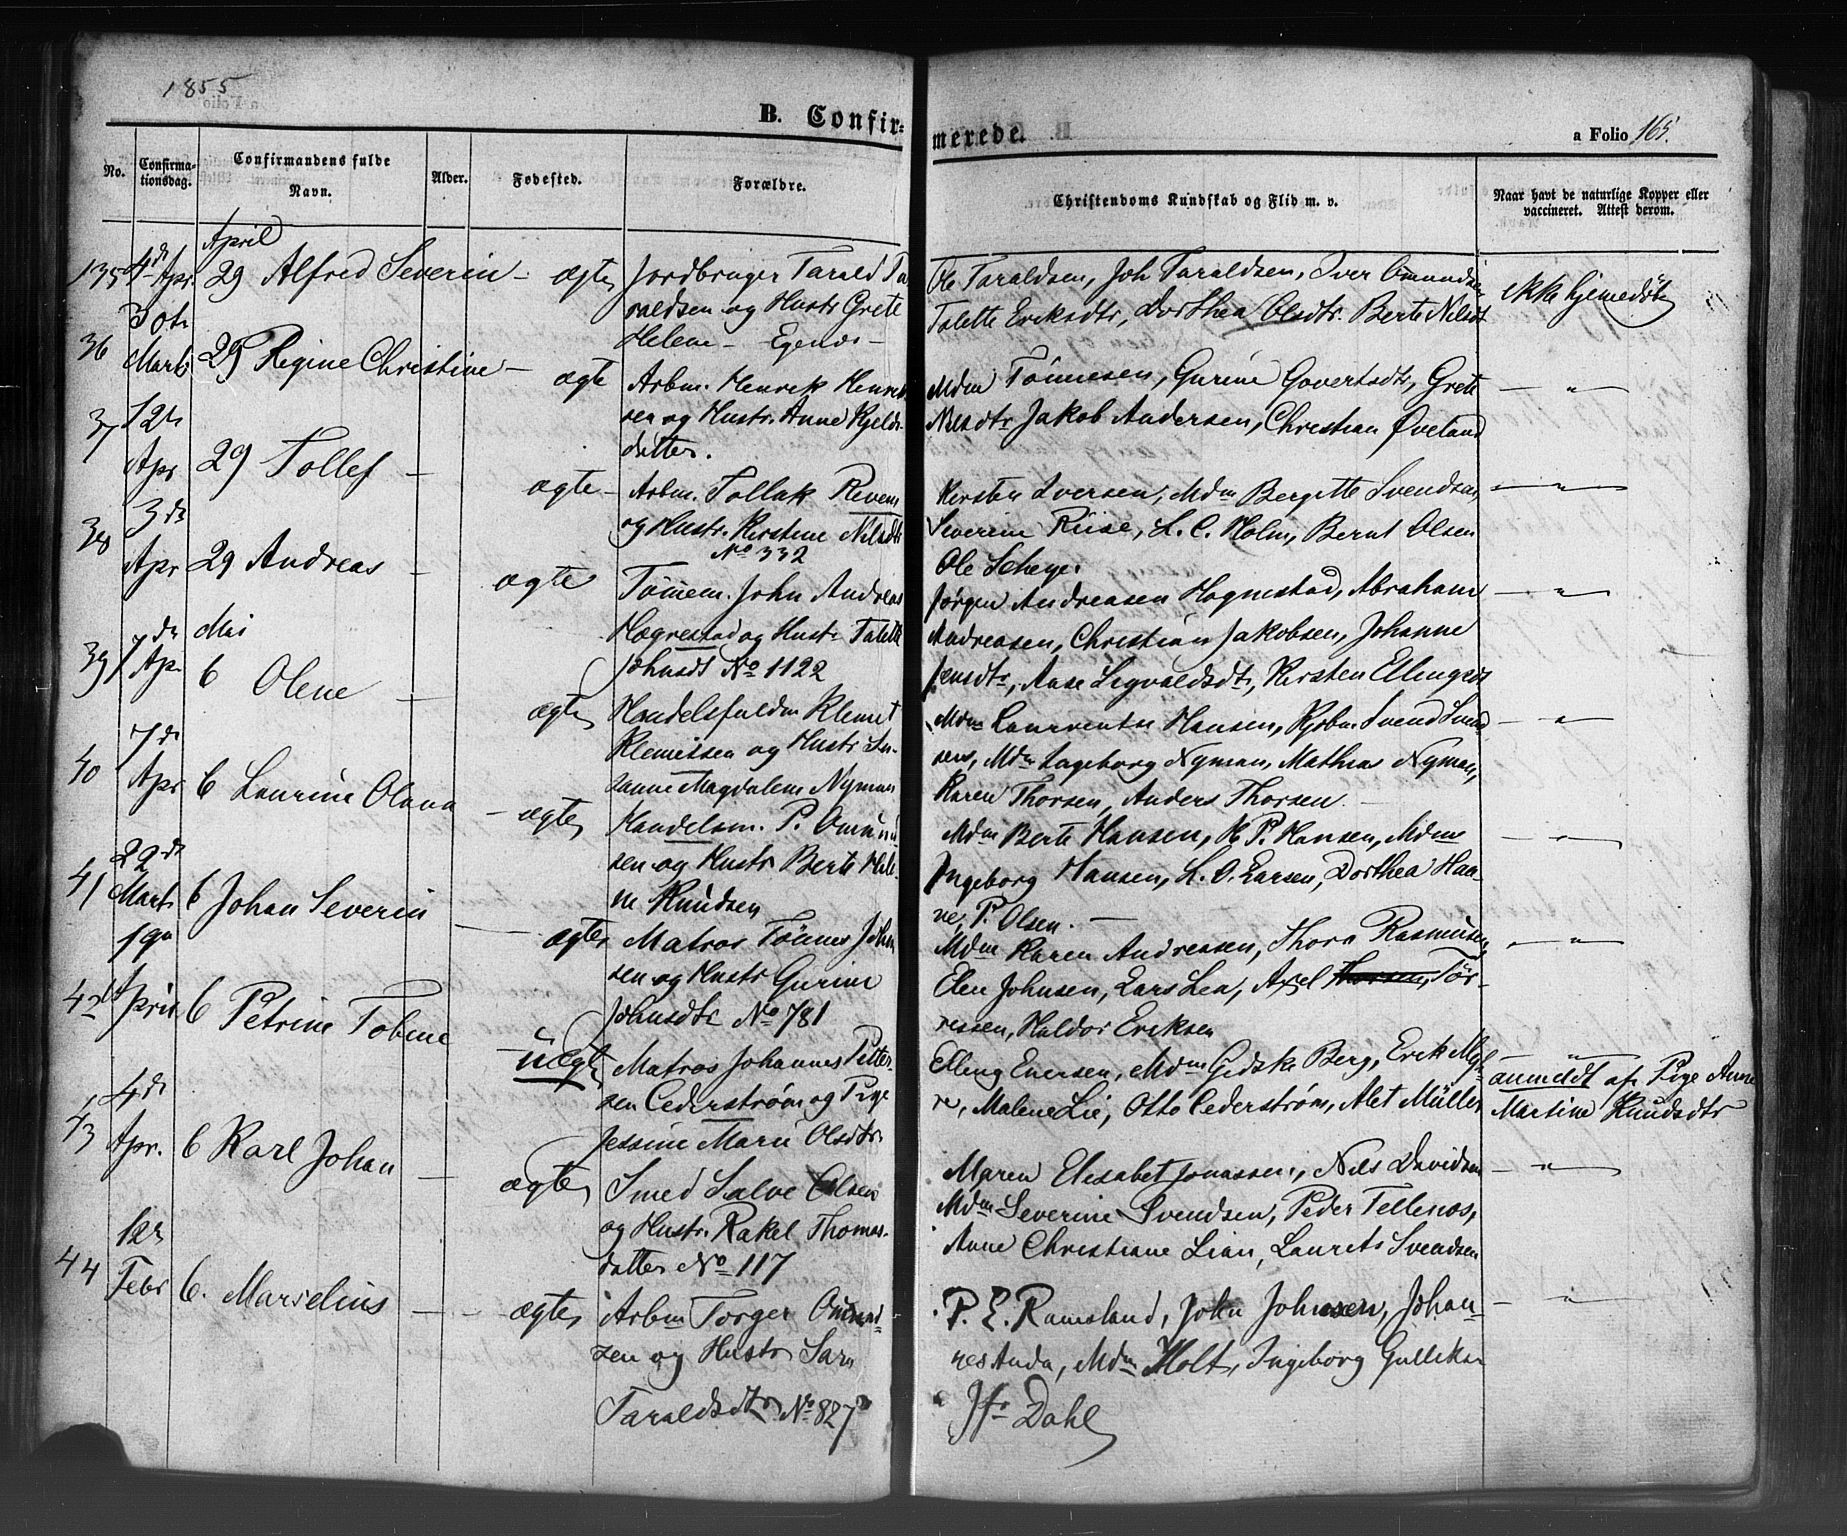 1855
B. Confir=
merede.
a Folio 165.
No.
Confirma-
tionsdag.
Confirmandens fulde
Navn.
Alder.
Fødested.
Forældre.
Christendoms Kundskab og Flid m. v.
Naar havt de naturlige Kopper eller
vaccineret. Attest derom.
April
135 4de Apr 29 Alfred Severin — ægte
Jordbruger Tarald Ta
raldsen og Hustr Grete
Helene — Egenæs —
Ole Taraldsen, Joh Taraldsen, Iver Omundsen
Talette Eriksdtr, Dorthea Olsdtr. Berte Nilsdt
ikke hjemedøbt
36 30te Marts 29 Regine Christine — ægte
Arbm. Henrik Henrik
sen og Hustr. Anne Kjelds-
datter.
Mdm Tönnesen, Gurine Govertsdtr, Grete
Nilsdtr Jakob Andersen, Christian Øveland
— " —
37 12te Apr 29 Tollef — ægte —
Arbm. Tollak Revem
og Hustr. Kirstine Nilsdtr
No 332
Kirsten Iversen, Mdm Bergitte Svendsen,
Severin Riise, L. C. Holm, Bernt Olsen
Ole
— " —
38 3de Apr 29 Andreas — ægte
Tömem. John Andreas
Hægrestad og Hustr Talette
Johnsdt No 1122
Jørgen Andreasen Hægrestad, Abraham
Andreasen, Christian Jakobsen, Johanne
Jensdtr, Aase Sigvaldsdtr, Kirsten Ellingsdt
— " —
Mai
39 7de Ap. 6 Olene — ægte
Handelsfuldm Klemet
Klemetsen og Hustr Su-
sanne Magdalene Nyman
Mdm Laurentse Hansen, Kjøbm. Svend Svend
sen, Mdm Ingeborg Nyman, Mathias Nyman,
Karen Thorsen, Anders Thorsen —
— " —
40 7de Apr 6 Laurine Olava — ægte
Handelsm. P. Omund
sen og Hustr Berte Hele-
ne Knudsen
Mdm Berte Hansen, H. P. Hansen, Mdm
Ingeborg Hansen, L. O. Larsen, Dorthea Han-
ne, P. Olsen. —
— " —
41 29de Marts 6 Johan Severin — ægte
Matros Tönnes John
sen og Hustr Gurine
Johnsdtr No 781
Mdm Karen Andreasen, Thora Rasmusen,
Elen Johnsen, Lars Lea, Axel Thorsen, Tör-
ressen, Haldor Eriksen
— " —
42 19de April 6 Petrine Tobine — uægte
Matros Johannes Petter-
sen Cederström og Pige
Jessine Marie Olsdtr
Elling Evensen, Mdm Gidske Berg, Erik Myh-
re, Malene Lie, Otto Cederström, Alet Müller
— " —
anmeldt af Pige Anne
Martine Knudsdtr
43 4de Apr. 6 Karl Johan — ægte
Smed Salve Olsen
og Hustr. Rakel Thomas-
datter No 117
Maren Elisabet Jonassen, Nils Davidsen
Mdm Severine Svendsen, Peder Tellenæs,
Anne Christiane Lian, Laurits Svendsen
— " —
44 1ste Febr 6. Marselius — — ægte
Arbm Torger Omund-
sen og Hustr Sara
Taraldsdtr No 827
P. E. Ramsland, John Johnsen, Johan-
nes Anda, Mdm Holt, Ingeborg Gulliksen
Jfr Dahl
— " —